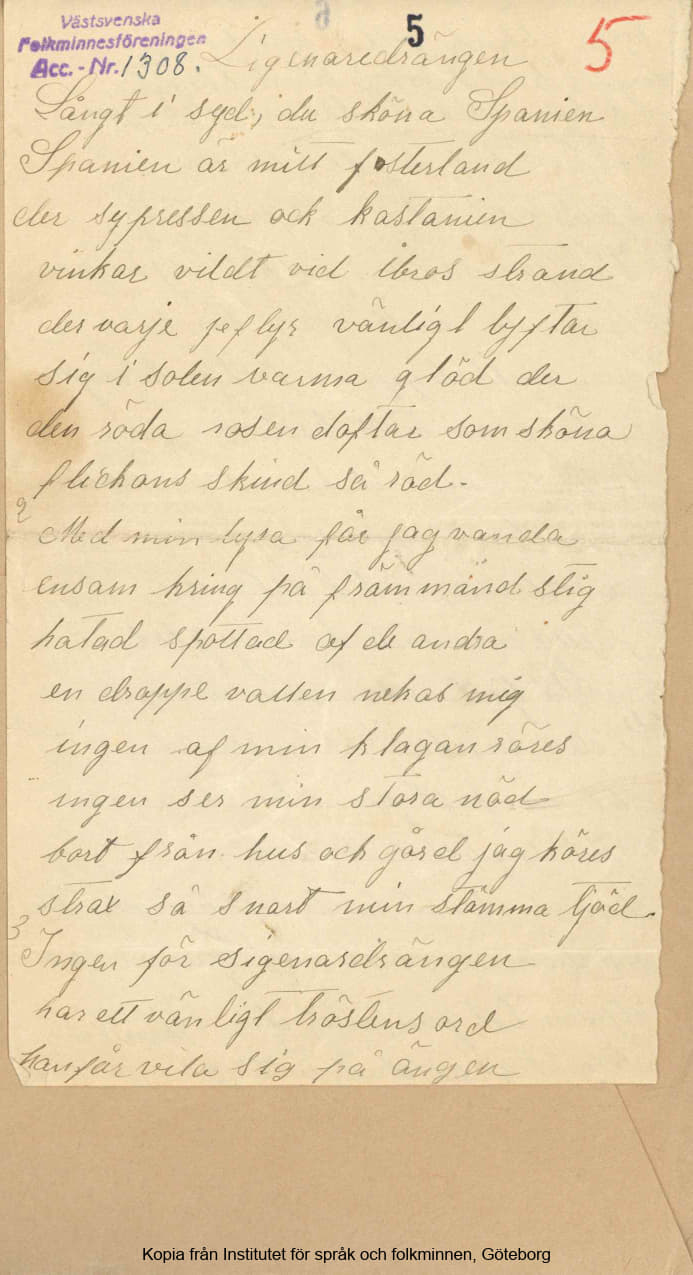 Västsvenska
Folkminnesföreningen
Acc.-Nr. 1308.
5
5
Zigenaredrängen
Långt i syd, du sköna Spanien
Spanien är mitt fosterland
der sypressen ock kastanien
vinkar vildt vid ibros strand
der varje seflyr vänligt lyftar
sig i solen varma glöd der
den röda rosen doftar som sköna
flickans skind så röd.
2
Med min lyra får jag vanda
ensam kring på främmänd stig
hatad spottad af de andra
en droppe vatten nekas mig
ingen af min klagan röres
ingen ser min stora nöd
bort från hus och gård jag köres
strax så snart min stämma ljöd.
3
Ingen för sigenardrängen
har ett vänligt tröstens ord
han får vila sig på ängen
Kopia från Institutet för språk och folkminnen, Göteborg